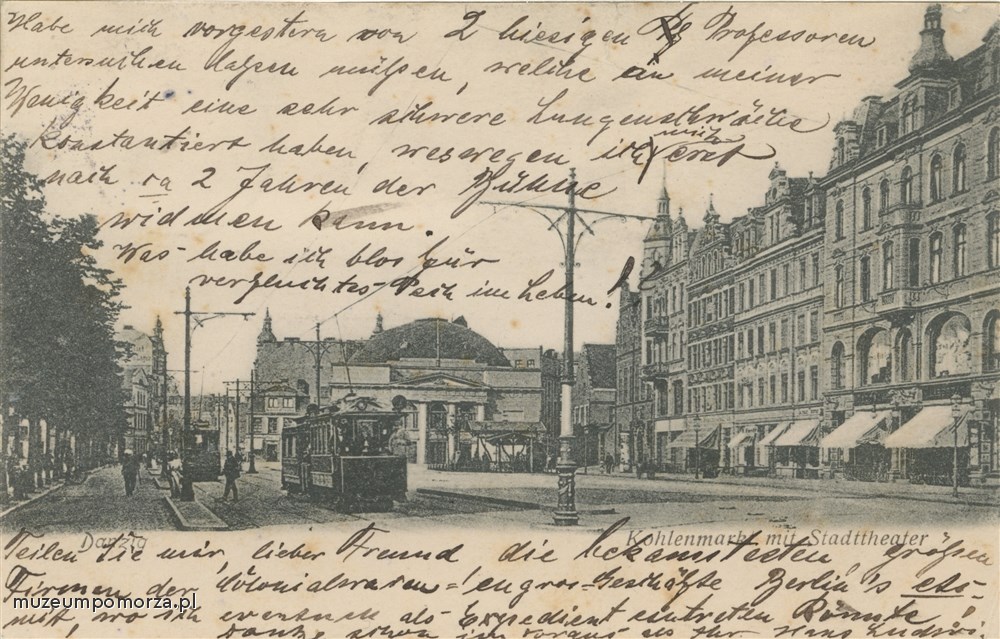 Habe mich vorgestern von 2 hiesigen Professoren
untersuchen lassen müssen, welche in meiner
Wenigkeit eine sehr schwere Lungenschwäche
konstantiert haben, weswegen ich mich erst
nach ca 2 Jahren der Bühne
widmen kann.
Was habe ich blos für
verfluchtes Pech im Leben!
Danzig
Kohlenmarkt mit Stadttheater
Teilen Sie mir, lieber Freund die bekanntesten, größten
Firmen der Colonialwaren-engros-Geschäfte Berlin's
mit, wo ich eventuell als Expedient eintreten könnte!
muzeumpomorza.pl
schon im voraus